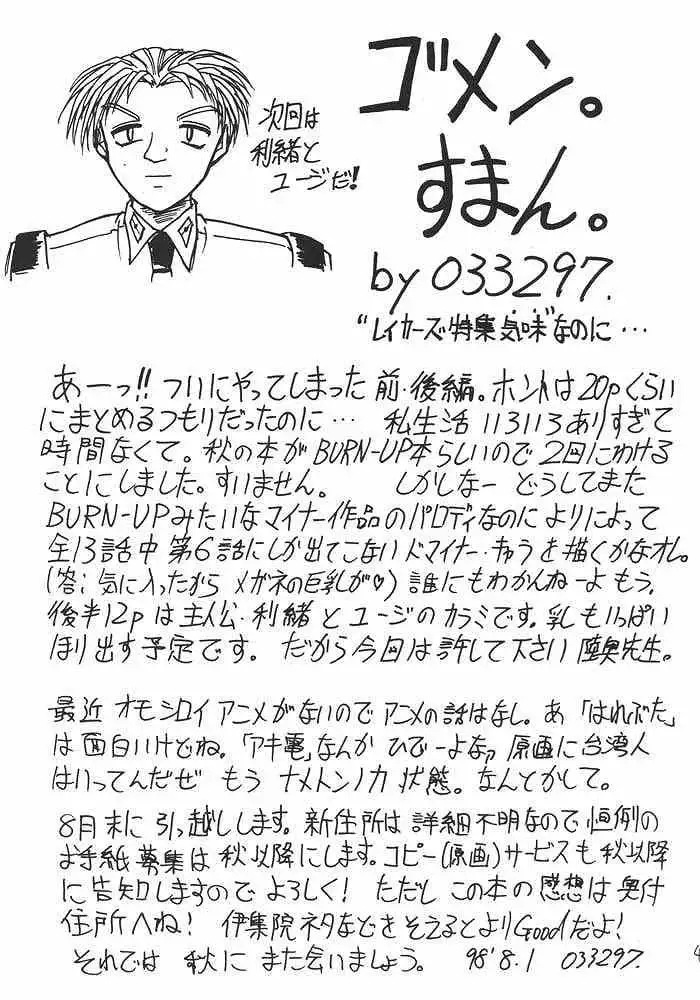 次回は
利緒と
ユージだ!
ゴメン。
すまん。
by 033297.
"レイカーズ特集気味"なのに…
あーっ!! ついにやってしまった 前・後編。ホントは20pくらい
にまとめるつもりだったのに… 私生活 いろいろありすぎて
時間なくて。秋の本がBURN-UP本らしいので 2回にわける
ことにしました。すいません。 しかしなー どうしてまた
BURN-UPみたいなマイナー作品のパロディなのに よりによって
全13話中 第6話にしか出てこない ドマイナー・キャラを描くかなオレ。
(答; 気に入ったから メガネの巨乳が♡) 誰にもわかんねーよ もう。
後半12pは主人公・利緒とユージのカラミです。乳もいっぱい
ほり出す予定です。 だから今回は許して下さい 陸奥先生。
最近 オモシロイ アニメがないので アニメの話はなし。あ「はれぶた」
は面白いけどね。「アキ電」なんか ひでーよなっ 原画に台湾人
はいってんだぜ もう ナメトンノカ 状態。なんとかして。
8月末に 引っ越しします。新住所は 詳細不明なので 恒例の
お手紙募集は秋以降にします。コピー(原画)サービスも秋以降
に告知しますので よろしく! ただし この本の感想は 奥付
住所へね! 伊集院ネタなどをそえるとよりGoodだよ!
それでは 秋に また会いましょう。 98'8.1 033297.
4